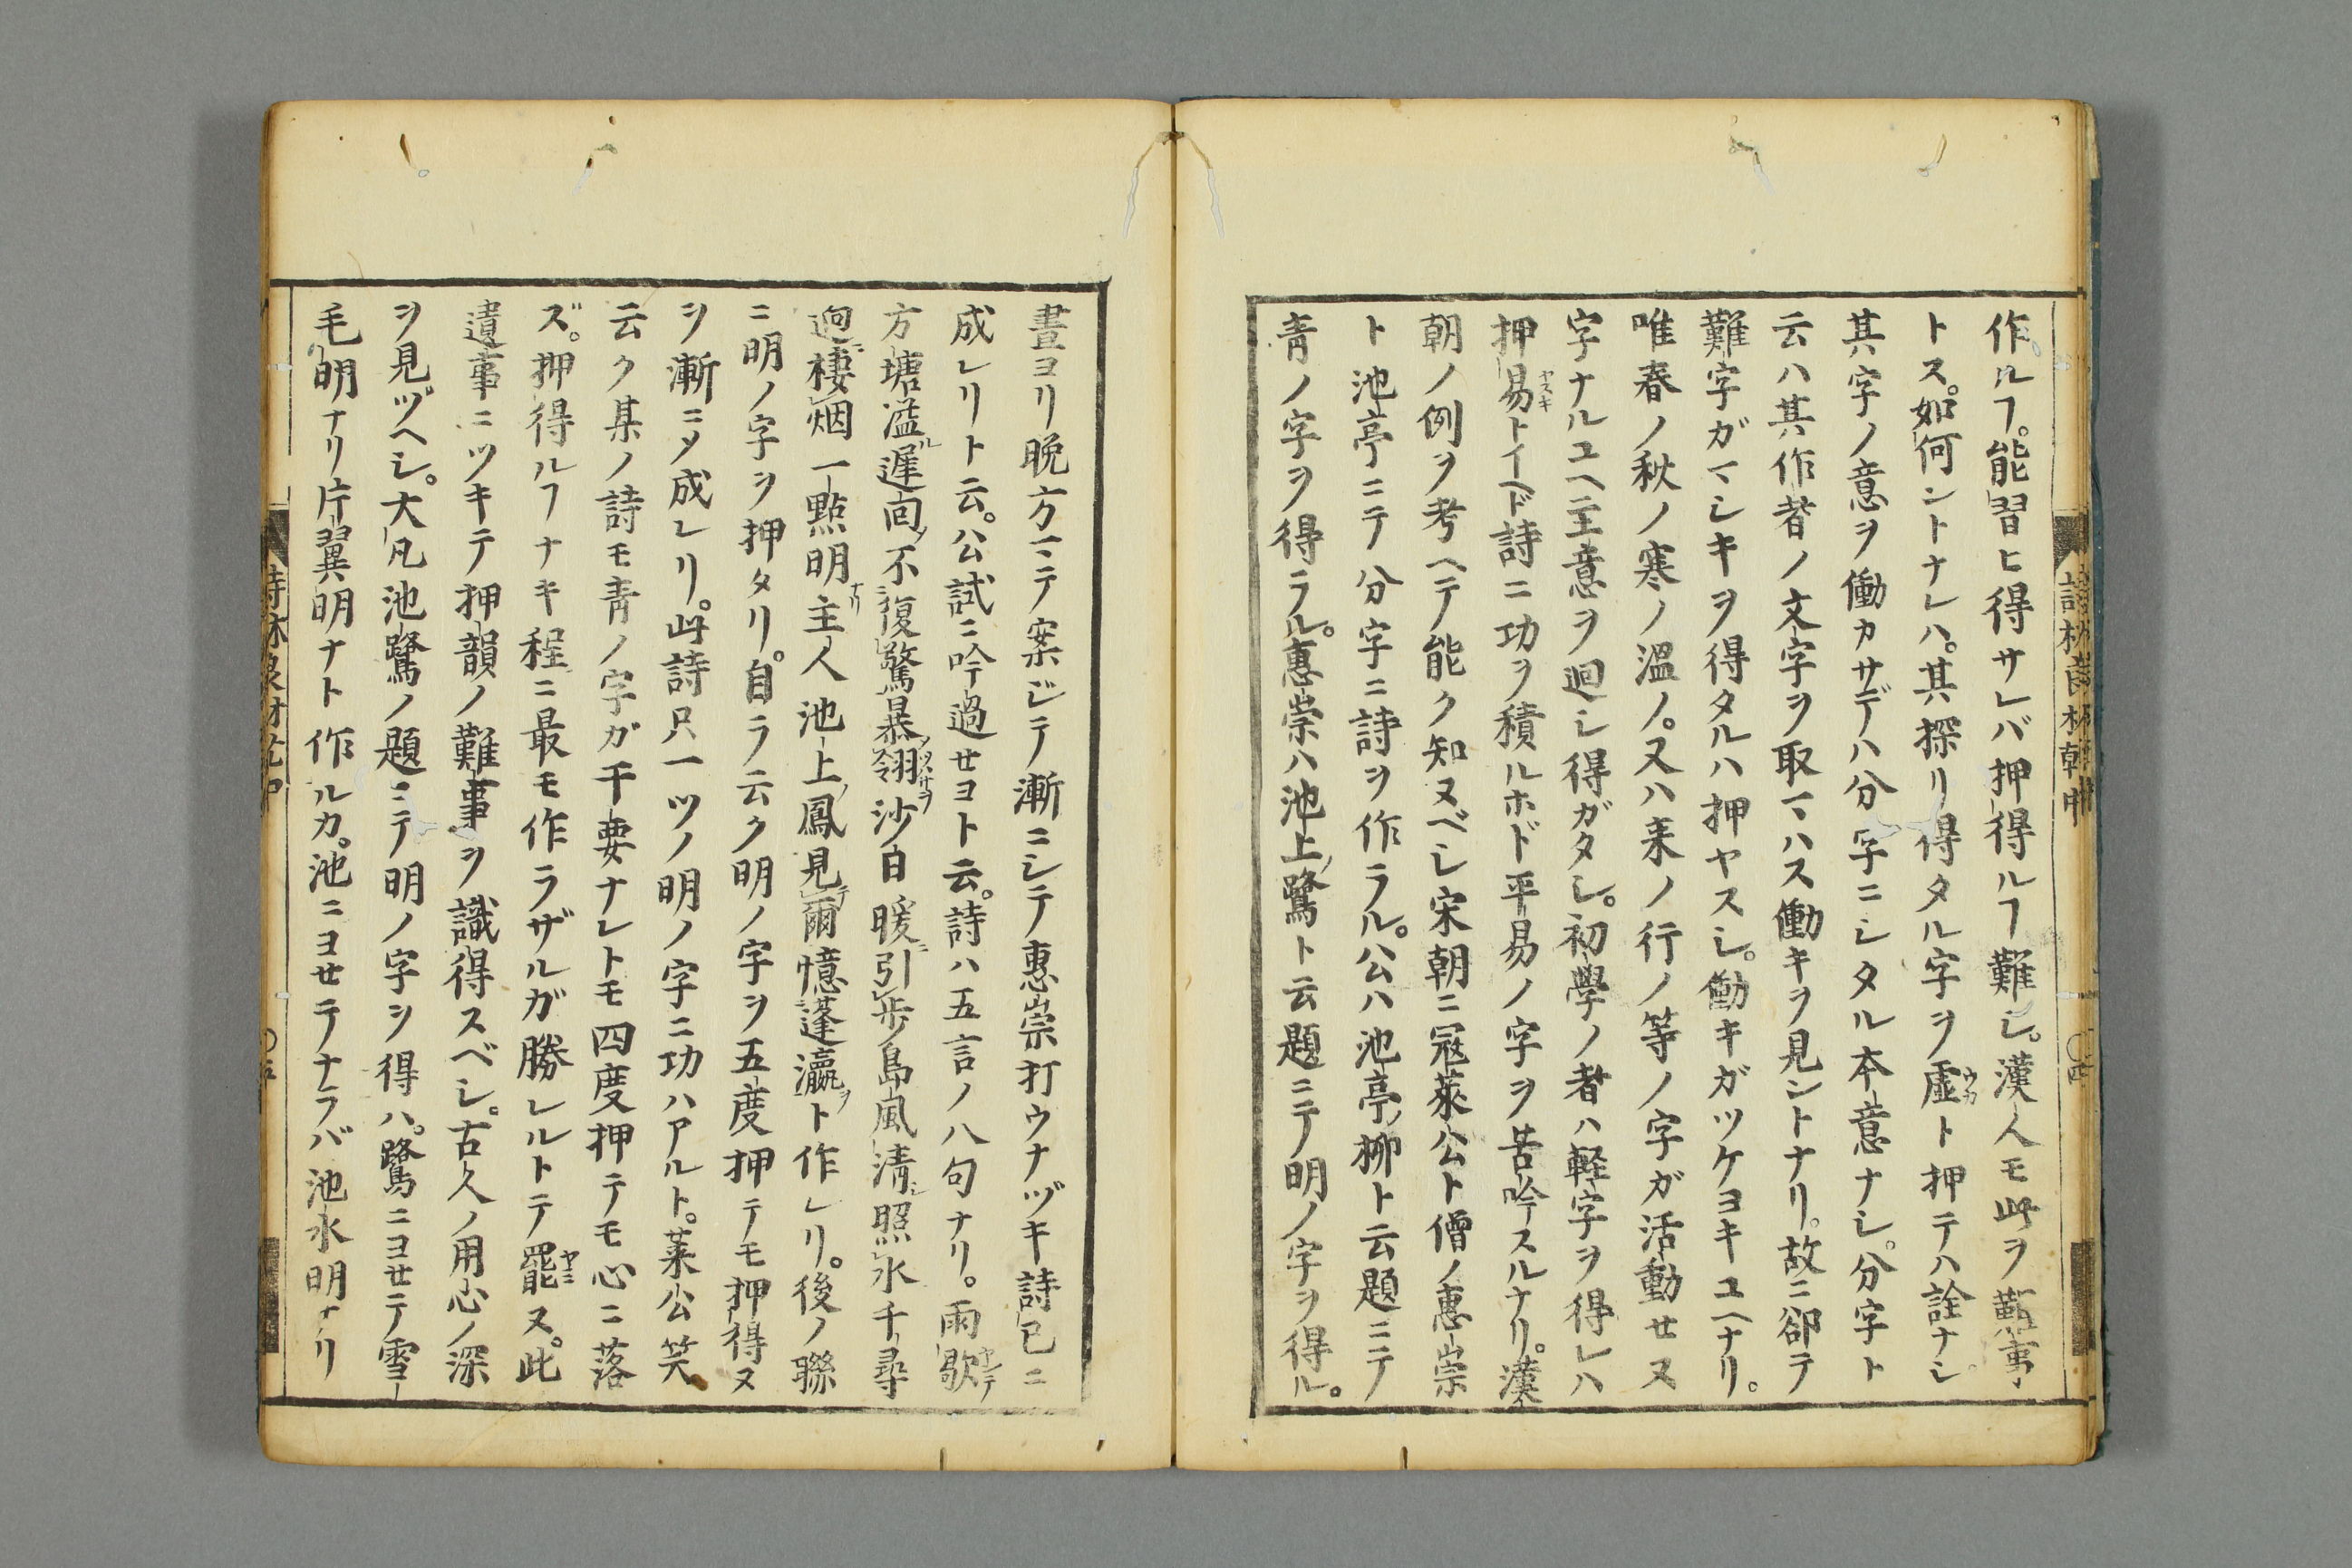 作ルヿ。能習ヒ得サレバ押得ルヿ難シ。漢人モ此ヲ難事
トス。如何ントナレハ。其探リ得タル字ヲ虚ト押テハ詮ナシ
其字ノ意ヲ働カサデハ分字ニシタル本意ナシ。分字ト
云ハ其作者ノ文字ヲ取マハス働キヲ見ントナリ。故ニ卻テ
難字ガマシキヲ得タルハ押ヤスシ。働キガツケヨキユヘナリ。
唯春ノ秋ノ寒ノ溫ノ。又ハ来ノ行ノ等ノ字ガ活動セヌ
字ナルユヘニ主意ヲ廻シ得ガタシ。初學ノ者ハ軽字ヲ得レハ
押易トイヘド詩ニ功ヲ積ルホド平易ノ字ヲ苦吟スルナリ。漢人
朝ノ例ヲ考ヘテ能ク知ヌベシ宋朝ニ冦萊公ト僧ノ惠崇
ト池亭ニテ分字ニ詩ヲ作ラル。公ハ池亭ノ柳ト云題ニテ
青ノ字ヲ得ラル。惠崇ハ池上ノ鷺ト云題ニテ明ノ字ヲ得ル。
晝ヨリ晩方マテ案ジテ漸ニシテ惠崇打ウナヅキ詩已ニ
成レリト云。公試ニ吟過セヨト云。詩ハ五言ノ八句ナリ。雨歇
方塘溢遲囘不復驚暴翎沙白暖引歩島風淸照水千尋
迥棲烟一點明主人池上鳳見爾憶蓬瀛ト作レリ。後ノ聯
ニ明ノ字ヲ押タリ。自ラ云ク明ノ字ヲ五度押テモ押得ヌ
ヲ漸ニメ成レリ。此詩只一ツノ明ノ字ニ功ハアルト。萊公笑
云ク某ノ詩モ青ノ字ガ干要ナレトモ四度押テモ心ニ落
ズ。押得ルヿナキ程ニ最モ作ラザルガ勝レルトテ罷ヌ。此
遺事ニツキテ押韻ノ難事ヲ識得スベシ。古久ノ用心ノ深
ヲ見ヅヘシ。大凡池鷺ノ題ニテ明ノ字シ得ハ。鷺ニヨセテ雪
毛明ナリ片翼明ナト作ルカ。池ニヨセテナラバ池水明ナリ